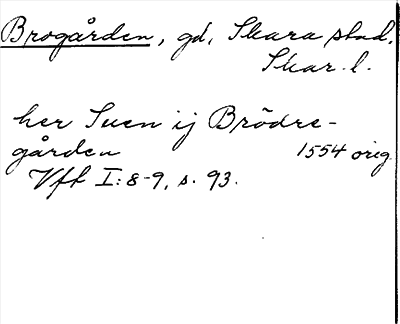 Brogården, gd, Skara stad.
Skar. l.
her Suen ij Brödre-
gården 1554 orig.
Vft I: 8-9, s. 93.